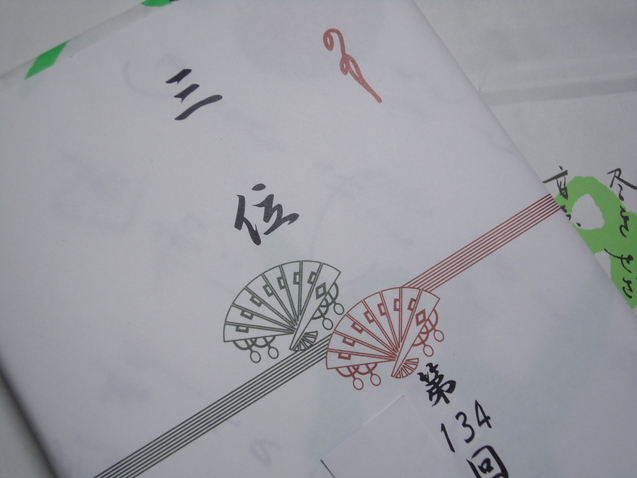 三位
第134回